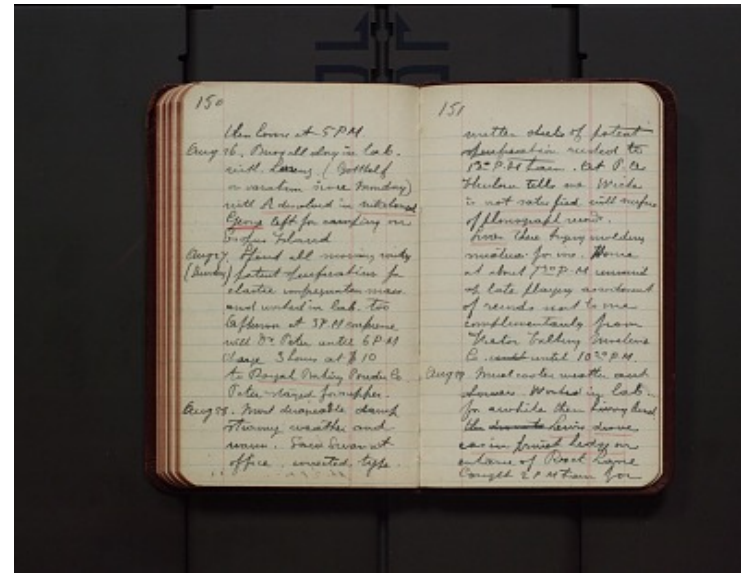 150
then home at 5 P.M.
Aug 26. Busy all day in lab.
with (Gotthelf
on vacation since Monday)
with A dissolved in
George left for camping on
Island
Aug 27. Spend all morning
(Sunday) patent specifications for
elastic impregnation mass
and worked in lab. too
Afternoon at 3 P.M conference
with Dr Peter until 6 P.M
charge 3 hours at $10
to Royal Baking Powder Co.
Peter stayed for supper.
Aug 28. Most disagreeable damp
stormy weather and
warm. Saw Swan at
office, corrected type
151
written sheets of patent
specification rushed to
P.M train. At P. A
Thurlow tells me Wicks
is not satisfied with surface
of phonograph records.
there trying molding
mixture for me. Home
at about 7 P.M
of late playing assortment
of records sent to me
complimentarily from
Victor Talking Machine
Co. until 10 P.M.
Aug 29. Muscat weather and
showers. Worked in lab.
for awhile then
Lewis drove
car in hedge on
entrance of Lane
Caught 2 P.M train for